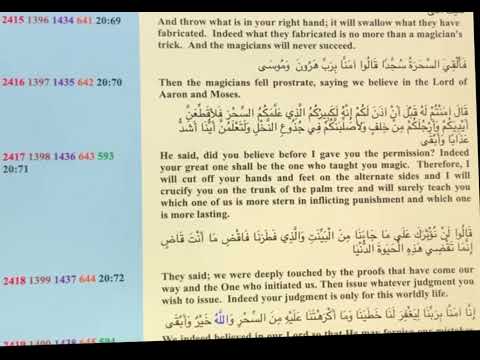 2415 1396 1434 641 20:69
And throw what is in your right hand; it will swallow what they have
fabricated. Indeed what they fabricated is no more than a magician's
trick. And the magicians will never succeed.
فَأُلْقِيَ السَّحَرَةُ سُجَّدًا قَالُوا آمَنَّا بِرَبِّ هَرُونَ وَمُوسَى
2416 1397 1435 642 20:70
Then the magicians fell prostrate, saying we believe in the Lord of
Aaron and Moses.
قَالَ آمَنْتُمْ لَهُ قَبْلَ أَنْ آذَنَ لَكُمْ إِنَّهُ لَكَبِيرُكُمُ الَّذِي عَلَّمَكُمُ السِّحْرَ فَلَأُقَطِّعَنَّ
أَيْدِيَكُمْ وَأَرْجُلَكُمْ مِنْ خِلَفٍ وَلَأُصَلِّبَنَّكُمْ فِي جُذُوعِ النَّخْلِ وَلَتَعْلَمُنَّ أَيُّنَا أَشَدُّ
عَذَابًا وَأَبْقَى
2417 1398 1436 643 593
20:71
He said, did you believe before I gave you the permission? Indeed
your great one shall be the one who taught you magic. Therefore, I
will cut off your hands and feet on the alternate sides and I will
crucify you on the trunk of the palm tree and will surely teach you
which one of us is more stern in inflicting punishment and which one
is more lasting.
قَالُوا لَنْ نُؤْثِرَكَ عَلَى مَا جَاءَنَا مِنَ الْبَيِّنَتِ وَالَّذِي فَطَرَنَا فَاقْضِ مَا أَنْتَ قَاضٍ
إِنَّمَا تَقْضِي هَذِهِ الْحَيَوةَ الدُّنْيَا
2418 1399 1437 644 20:72
They said; we were deeply touched by the proofs that have come our
way and the One who initiated us. Then issue whatever judgment you
wish to issue. Indeed your judgment is only for this worldly life.
إِنَّا آمَنَّا بِرَبِّنَا لِيَغْفِرَ لَنَا خَطَيَنَا وَمَا أَكْرَهْتَنَا عَلَيْهِ مِنَ السِّحْرِ وَاللَّهُ خَيْرٌ وَأَبْقَى
We indeed believed in our Lord so that He may forgive our mistakes